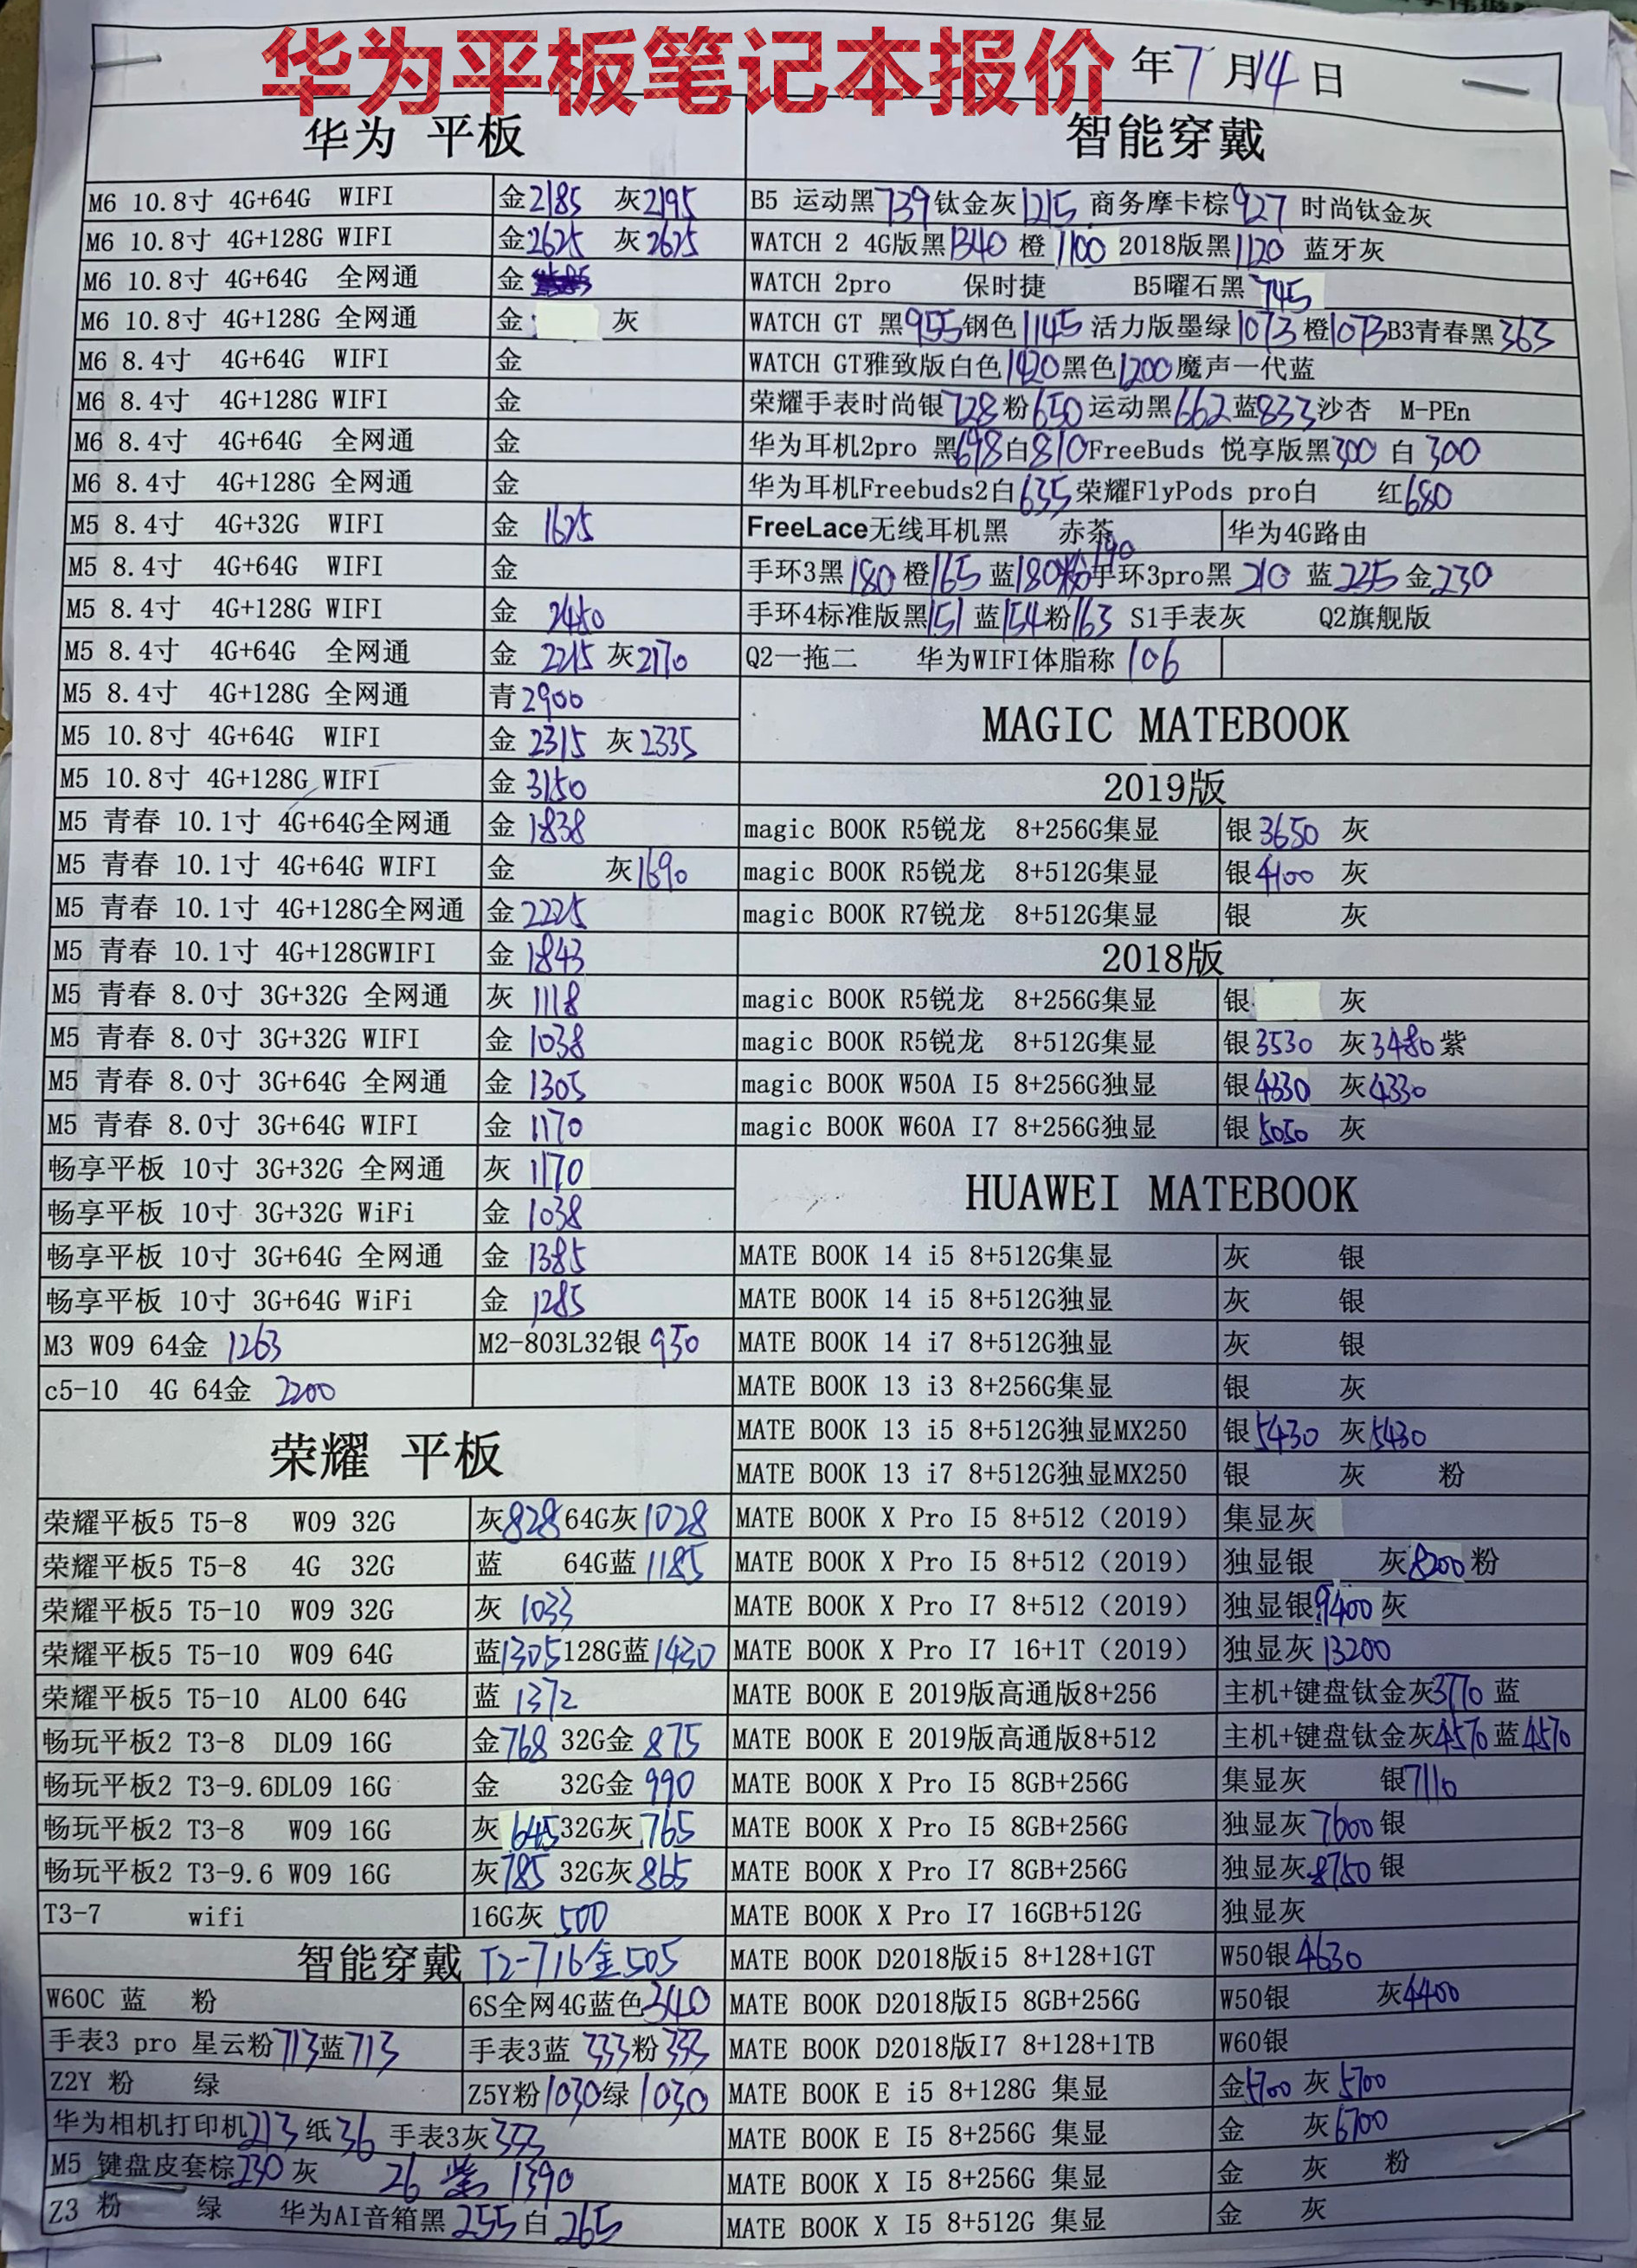 华为平板笔记本报价 年7月14日
华为 平板
M6 10.8寸 4G+64G WIFI 金2185 灰2195
M6 10.8寸 4G+128G WIFI 金2625 灰2625
M6 10.8寸 4G+64G 全网通 金
M6 10.8寸 4G+128G 全网通 金 灰
M6 8.4寸 4G+64G WIFI 金
M6 8.4寸 4G+128G WIFI 金
M6 8.4寸 4G+64G 全网通 金
M6 8.4寸 4G+128G 全网通 金
M5 8.4寸 4G+32G WIFI 金 1625
M5 8.4寸 4G+64G WIFI 金
M5 8.4寸 4G+128G WIFI 金 2480
M5 8.4寸 4G+64G 全网通 金 2215 灰2170
M5 8.4寸 4G+128G 全网通 青2900
M5 10.8寸 4G+64G WIFI 金 2315 灰2335
M5 10.8寸 4G+128G WIFI 金 3150
M5 青春 10.1寸 4G+64G全网通 金 1838
M5 青春 10.1寸 4G+64G WIFI 金 灰1690
M5 青春 10.1寸 4G+128G全网通 金2225
M5 青春 10.1寸 4G+128GWIFI 金 1843
M5 青春 8.0寸 3G+32G 全网通 灰 1118
M5 青春 8.0寸 3G+32G WIFI 金 1038
M5 青春 8.0寸 3G+64G 全网通 金 1305
M5 青春 8.0寸 3G+64G WIFI 金 1170
畅享平板 10寸 3G+32G 全网通 灰 1170
畅享平板 10寸 3G+32G WiFi 金 1038
畅享平板 10寸 3G+64G 全网通 金 1385
畅享平板 10寸 3G+64G WiFi 金 1285
M3 W09 64金 1263 M2-803L32银 950
c5-10 4G 64金 2200
荣耀 平板
荣耀平板5 T5-8 W09 32G 灰828 64G灰1028
荣耀平板5 T5-8 4G 32G 蓝 64G蓝1185
荣耀平板5 T5-10 W09 32G 灰 1033
荣耀平板5 T5-10 W09 64G 蓝1305 128G蓝1430
荣耀平板5 T5-10 AL00 64G 蓝 1372
畅玩平板2 T3-8 DL09 16G 金768 32G金 875
畅玩平板2 T3-9.6DL09 16G 金 32G金 990
畅玩平板2 T3-8 W09 16G 灰 645 32G灰 765
畅玩平板2 T3-9.6 W09 16G 灰785 32G灰865
T3-7 wifi 16G灰 500
智能穿戴 T2-716金505
W60C 蓝 粉 6S全网4G蓝色340
手表3 pro 星云粉713蓝713 手表3蓝 333粉333
Z2Y 粉 绿 Z5Y粉1030绿1030
华为相机打印机213纸36 手表3灰333
M5 键盘皮套棕230灰 26 紫 1390
Z3 粉 绿 华为AI音箱黑 255白265
智能穿戴
B5 运动黑739钛金灰1215 商务摩卡棕927 时尚钛金灰
WATCH 2 4G版黑1340 橙 1100 2018版黑1120 蓝牙灰
WATCH 2pro 保时捷 B5曜石黑745
WATCH GT 黑955钢色1145 活力版墨绿1073橙1073B3青春黑363
WATCH GT雅致版白色1420黑色1200魔声一代蓝
荣耀手表时尚银728粉650运动黑662蓝833沙杏 M-PEn
华为耳机2pro 黑698白810FreeBuds 悦享版黑300 白 300
华为耳机Freebuds2白635荣耀FlyPods pro白 红680
FreeLace无线耳机黑 赤茶 华为4G路由
手环3黑180橙165蓝180粉190手环3pro黑 210 蓝225金230
手环4标准版黑151蓝154粉163 S1手表灰 Q2旗舰版
Q2一拖二 华为WIFI体脂称 106
MAGIC MATEBOOK
2019版
magic BOOK R5锐龙 8+256G集显 银3650 灰
magic BOOK R5锐龙 8+512G集显 银4100 灰
magic BOOK R7锐龙 8+512G集显 银 灰
2018版
magic BOOK R5锐龙 8+256G集显 银 灰
magic BOOK R5锐龙 8+512G集显 银3530 灰3480紫
magic BOOK W50A I5 8+256G独显 银4330 灰4330
magic BOOK W60A I7 8+256G独显 银5050 灰
HUAWEI MATEBOOK
MATE BOOK 14 i5 8+512G集显 灰 银
MATE BOOK 14 i5 8+512G独显 灰 银
MATE BOOK 14 i7 8+512G独显 灰 银
MATE BOOK 13 i3 8+256G集显 银 灰
MATE BOOK 13 i5 8+512G独显MX250 银5430 灰5430
MATE BOOK 13 i7 8+512G独显MX250 银 灰 粉
MATE BOOK X Pro I5 8+512（2019） 集显灰
MATE BOOK X Pro I5 8+512（2019） 独显银 灰8200粉
MATE BOOK X Pro I7 8+512（2019） 独显银9400灰
MATE BOOK X Pro I7 16+1T（2019） 独显灰13200
MATE BOOK E 2019版高通版8+256 主机+键盘钛金灰3770蓝
MATE BOOK E 2019版高通版8+512 主机+键盘钛金灰4570蓝4570
MATE BOOK X Pro I5 8GB+256G 集显灰 银7110
MATE BOOK X Pro I5 8GB+256G 独显灰7600银
MATE BOOK X Pro I7 8GB+256G 独显灰8750银
MATE BOOK X Pro I7 16GB+512G 独显灰
MATE BOOK D2018版i5 8+128+1GT W50银4630
MATE BOOK D2018版I5 8GB+256G W50银 灰4400
MATE BOOK D2018版I7 8+128+1TB W60银
MATE BOOK E i5 8+128G 集显 金5700 灰5700
MATE BOOK E I5 8+256G 集显 金 灰6700
MATE BOOK X I5 8+256G 集显 金 灰 粉
MATE BOOK X I5 8+512G 集显 金 灰